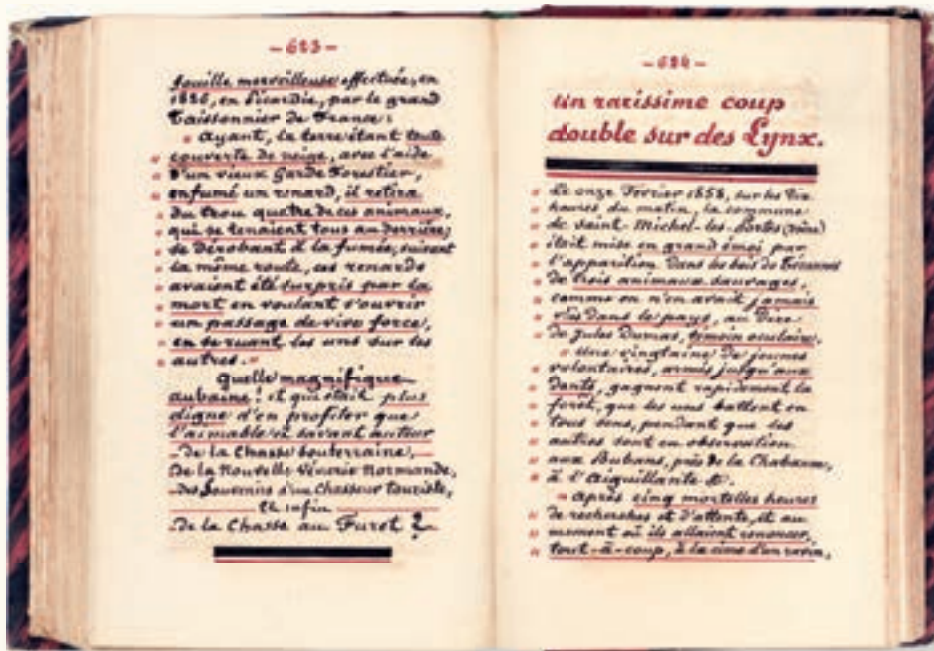 - 623 -
fouille merveilleuse effectuée, en
1886, en Picardie, par le grand
Taissonnier de France:
" Ayant, la terre étant toute
" couverte de neige, avec l'aide
" d'un vieux Garde Forestier,
" enfumé un renard, il retira
" du trou quatre de ces animaux,
" qui se tenaient tous au derrière;
" se dérobant à la fumée, suivant
" la même route, ces renards
" avaient été surpris par la
" mort en voulant s'ouvrir
" un passage de vive force,
" en se ruant les uns sur les
" autres. "
Quelle magnifique
aubaine! et qui était plus
digne d'en profiter que
l'aimable et savant auteur
- De la Chasse Souterraine,
De la Nouvelle Vénerie Normande,
- des Souvenirs d'un Chasseur Touriste,
et enfin
- De la Chasse au Furet ?
- 624 -
Un rarissime coup
double sur des Lynx.
" Le onze Février 1858, sur les dix
" heures du matin, la commune
" de Saint-Michel-les-Portes (Isère)
" était mise en grand émoi par
" l'apparition dans les bois de
" de trois animaux sauvages,
" comme on n'en avait jamais
" vus dans le pays, au dire
" de Jules Dumas, témoin oculaire.
" Une vingtaine de jeunes
" volontaires, armés jusqu'aux
" dents, gagnent rapidement la
" forêt, que les uns battent en
" tous sens, pendant que les
" autres sont en observation
" aux Bubans, près de la Chabanne,
" à l'Aiguillante &.
" Après cinq mortelles heures
" de recherches et d'attente, et au
" moment où ils allaient renoncer,
" tout-à-coup, à la cime d'un ravin,